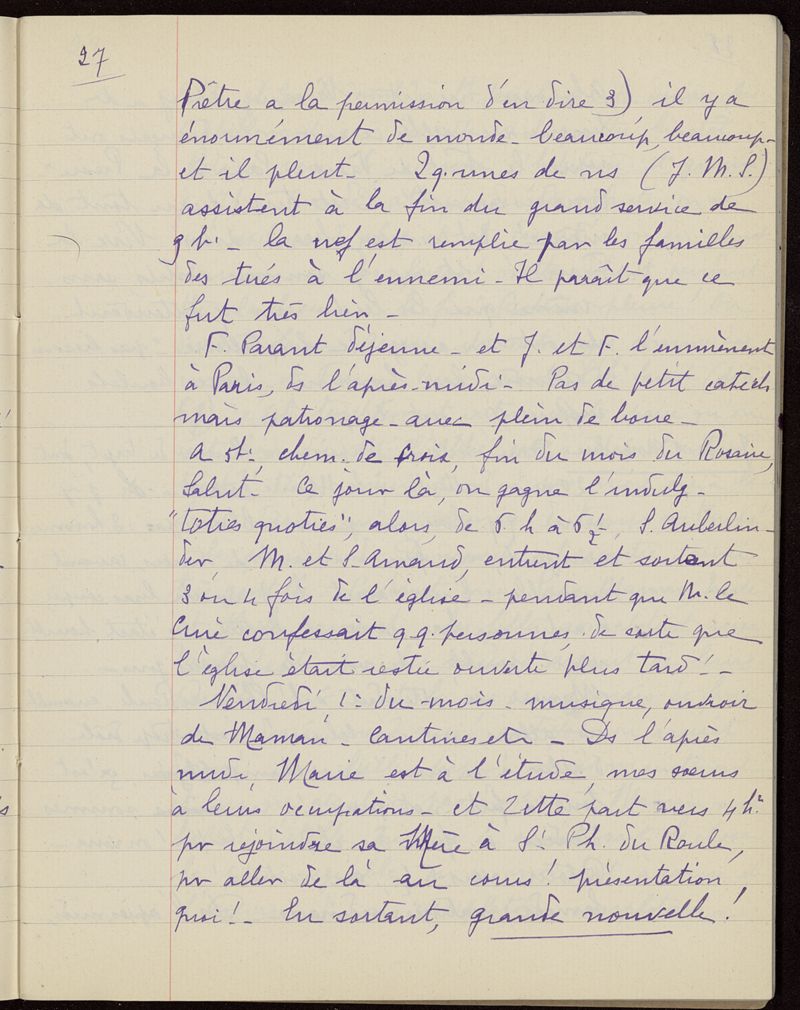 27
Prêtre a la permission d'en dire 3) il y a
énormément de monde - beaucoup, beaucoup -
et il pleut - 2 q. unes de ns (J. M. S.)
assistent à la fin du grand service de
9 h. - la nef est remplie par les familles
des tués à l'ennemi - Il paraît que ce
fut très bien -
F. Parant déjeune - et J. et F. l'emmènent
à Paris, ds l'après-midi - Pas de petit catéch
mais patronage - avec plein de boue -
A 5h, chem. de croix, fin du mois du Rosaire,
Salut - Ce jour là, on gagne l'indulg -
"toties quoties", alors, de 6 h à 6 1/2, S.
der, M. et S. Arnaud, entrent et sortent
3 ou 4 fois de l'église - pendant que M. le
Curé confessait q q. personnes, de sorte que
l'église était restée ouverte plus tard ! -
Vendredi, 1: du mois - musique, ouvroir
de Maman - Cantines etc - Ds l'après
midi, Marie est à l'étude, mes sœurs
à leurs occupations - et Zette part vers 4 h.
pr rejoindre sa Mère à St Ph. du Roule,
pr aller de là au cours ! présentation,
quoi ! - En sortant, grande nouvelle !